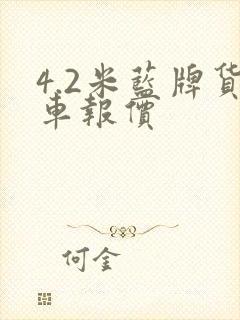 4.2米藍牌貨
車報價
何金